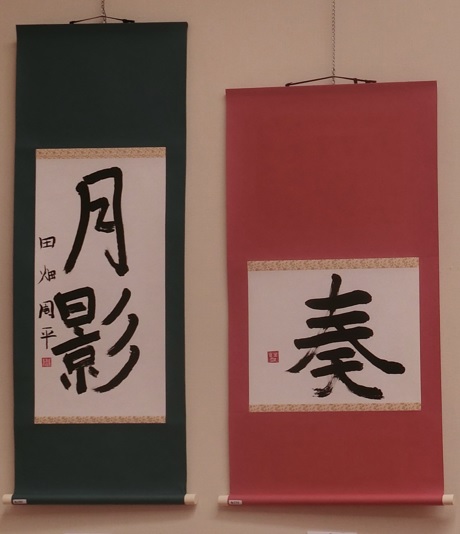 月影
田畑周平
奏